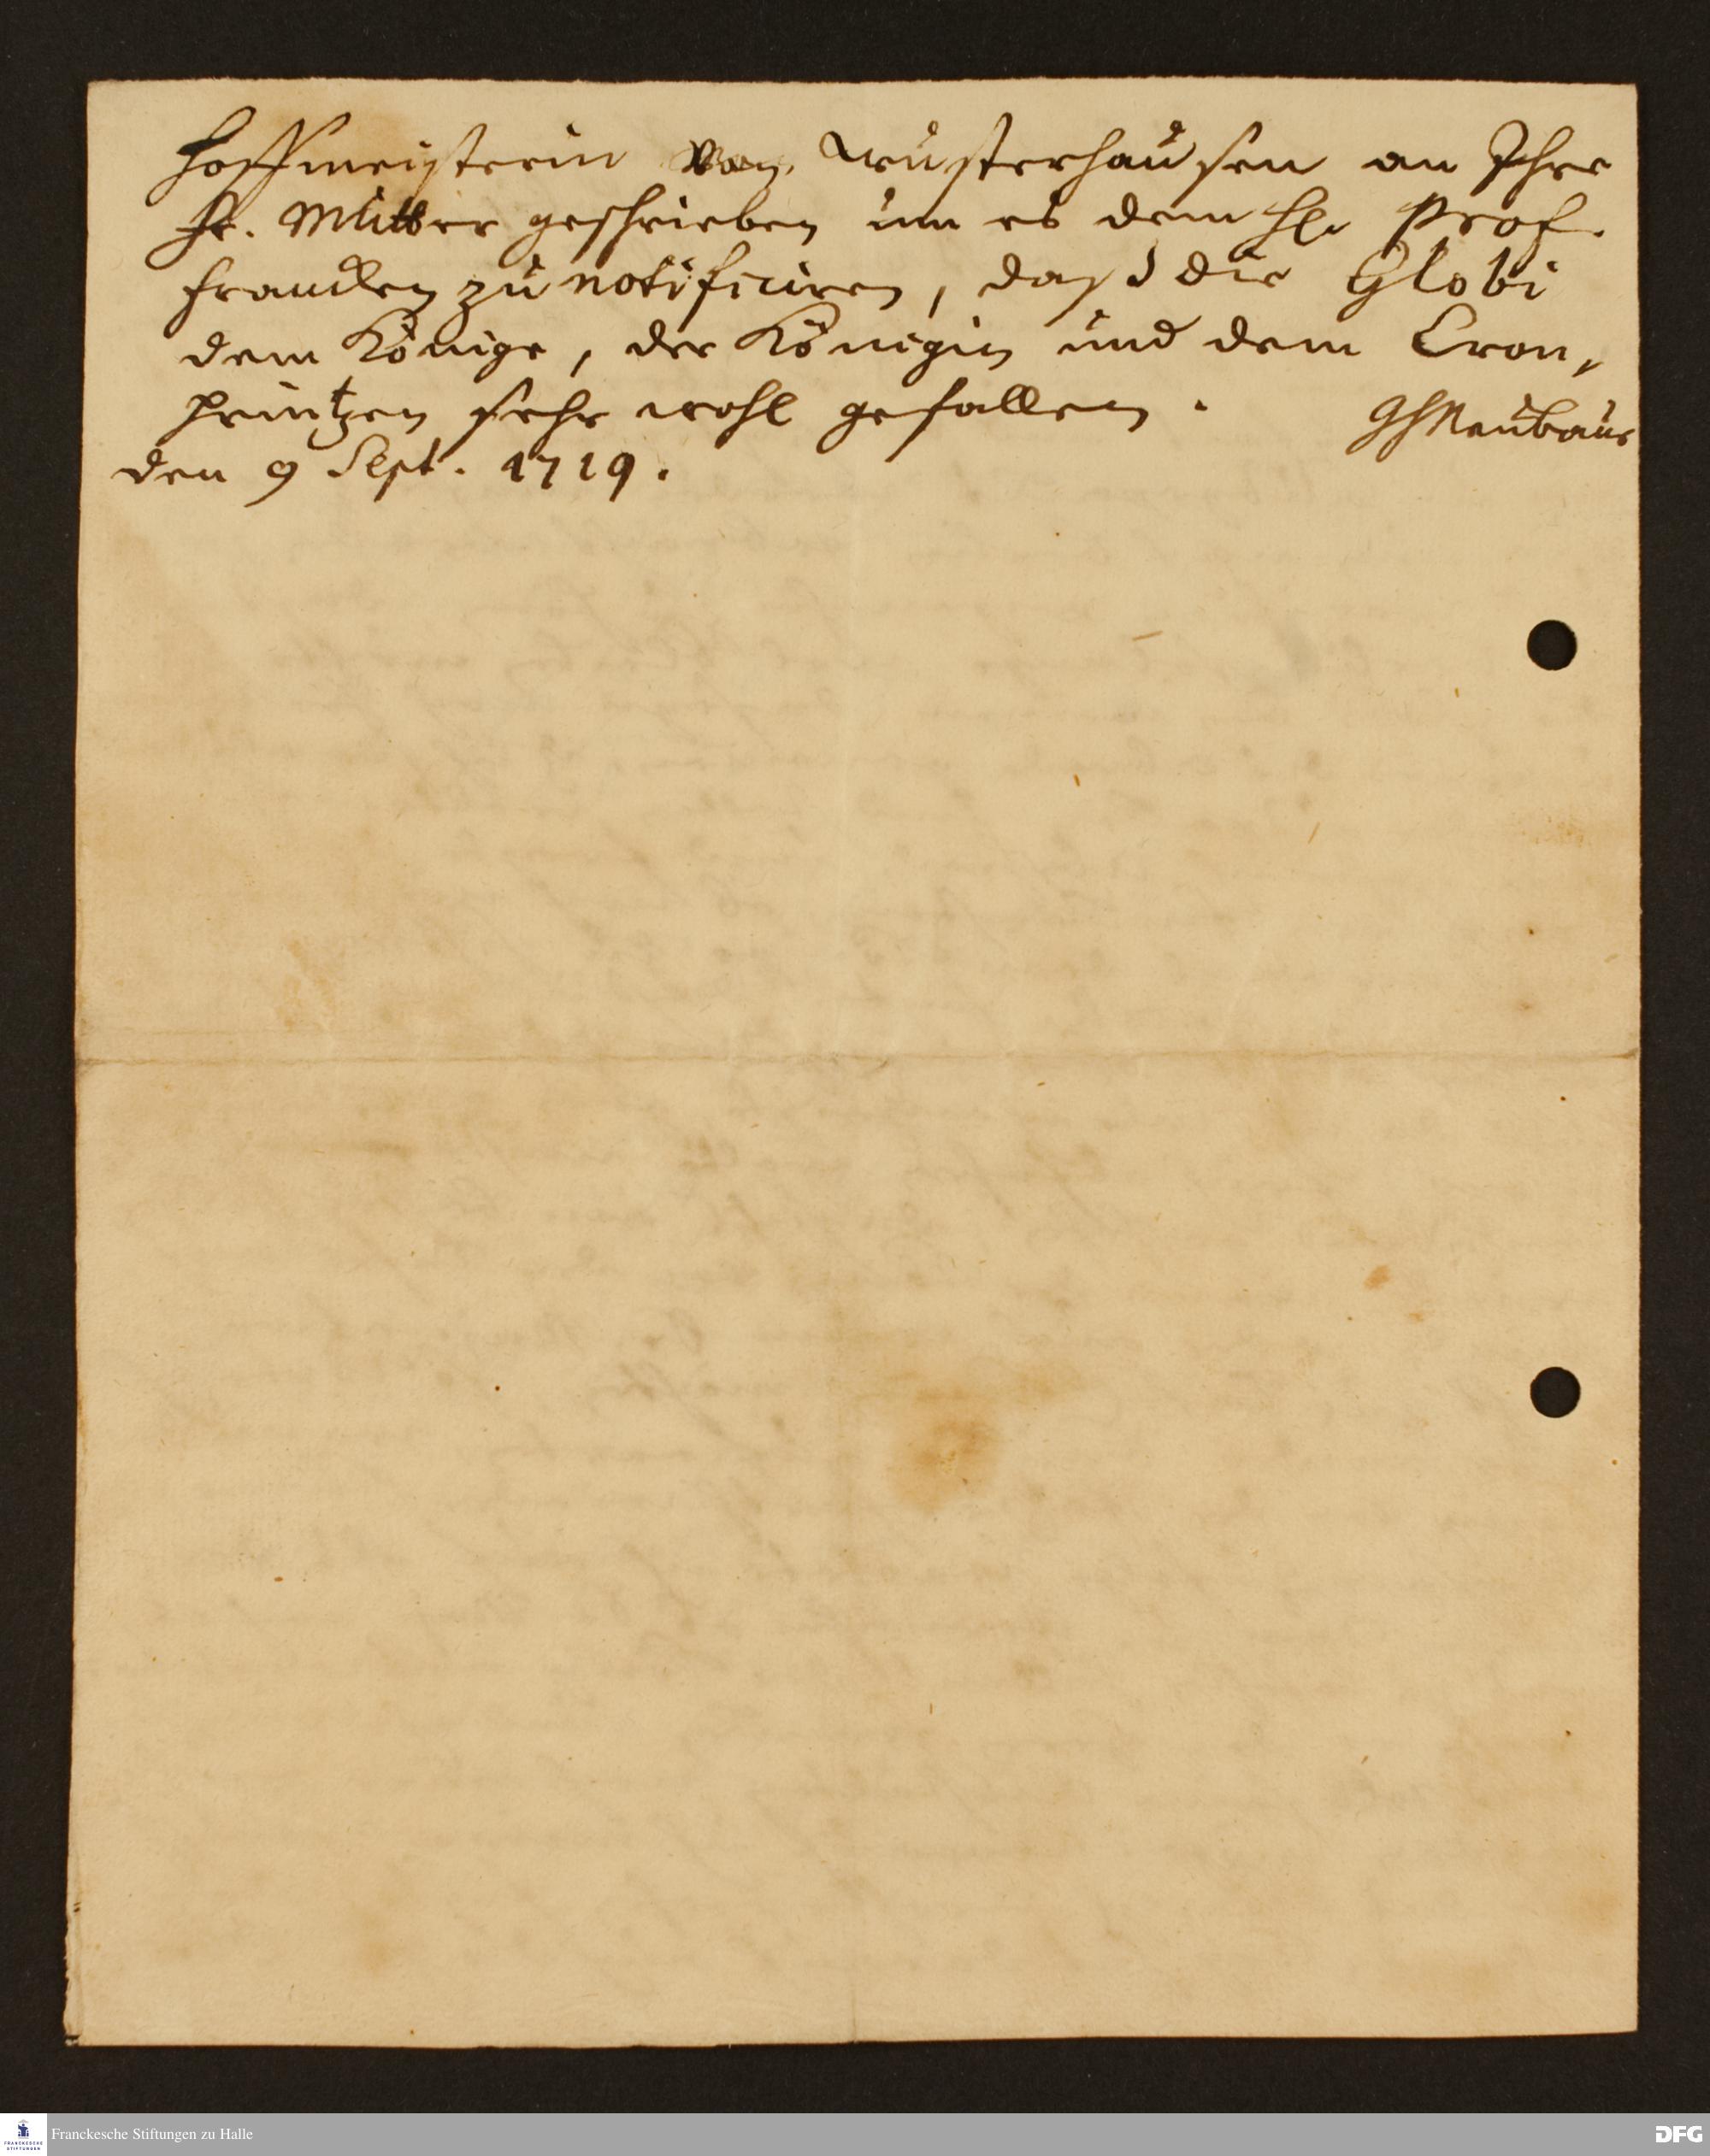 Hoffmeisterin von Wusterhausen an Ihre
Fr. Mutter geschrieben um es dem H. Prof.
Francken zu notificiren, daß die Globi
dem Könige, der Königin und dem Cron,
printzen sehr wohl gefallen.
GHNeubauer
den 9 Sept. 1719.
FRANCKESCHE STIFTUNGEN
Franckesche Stiftungen zu Halle
DFG